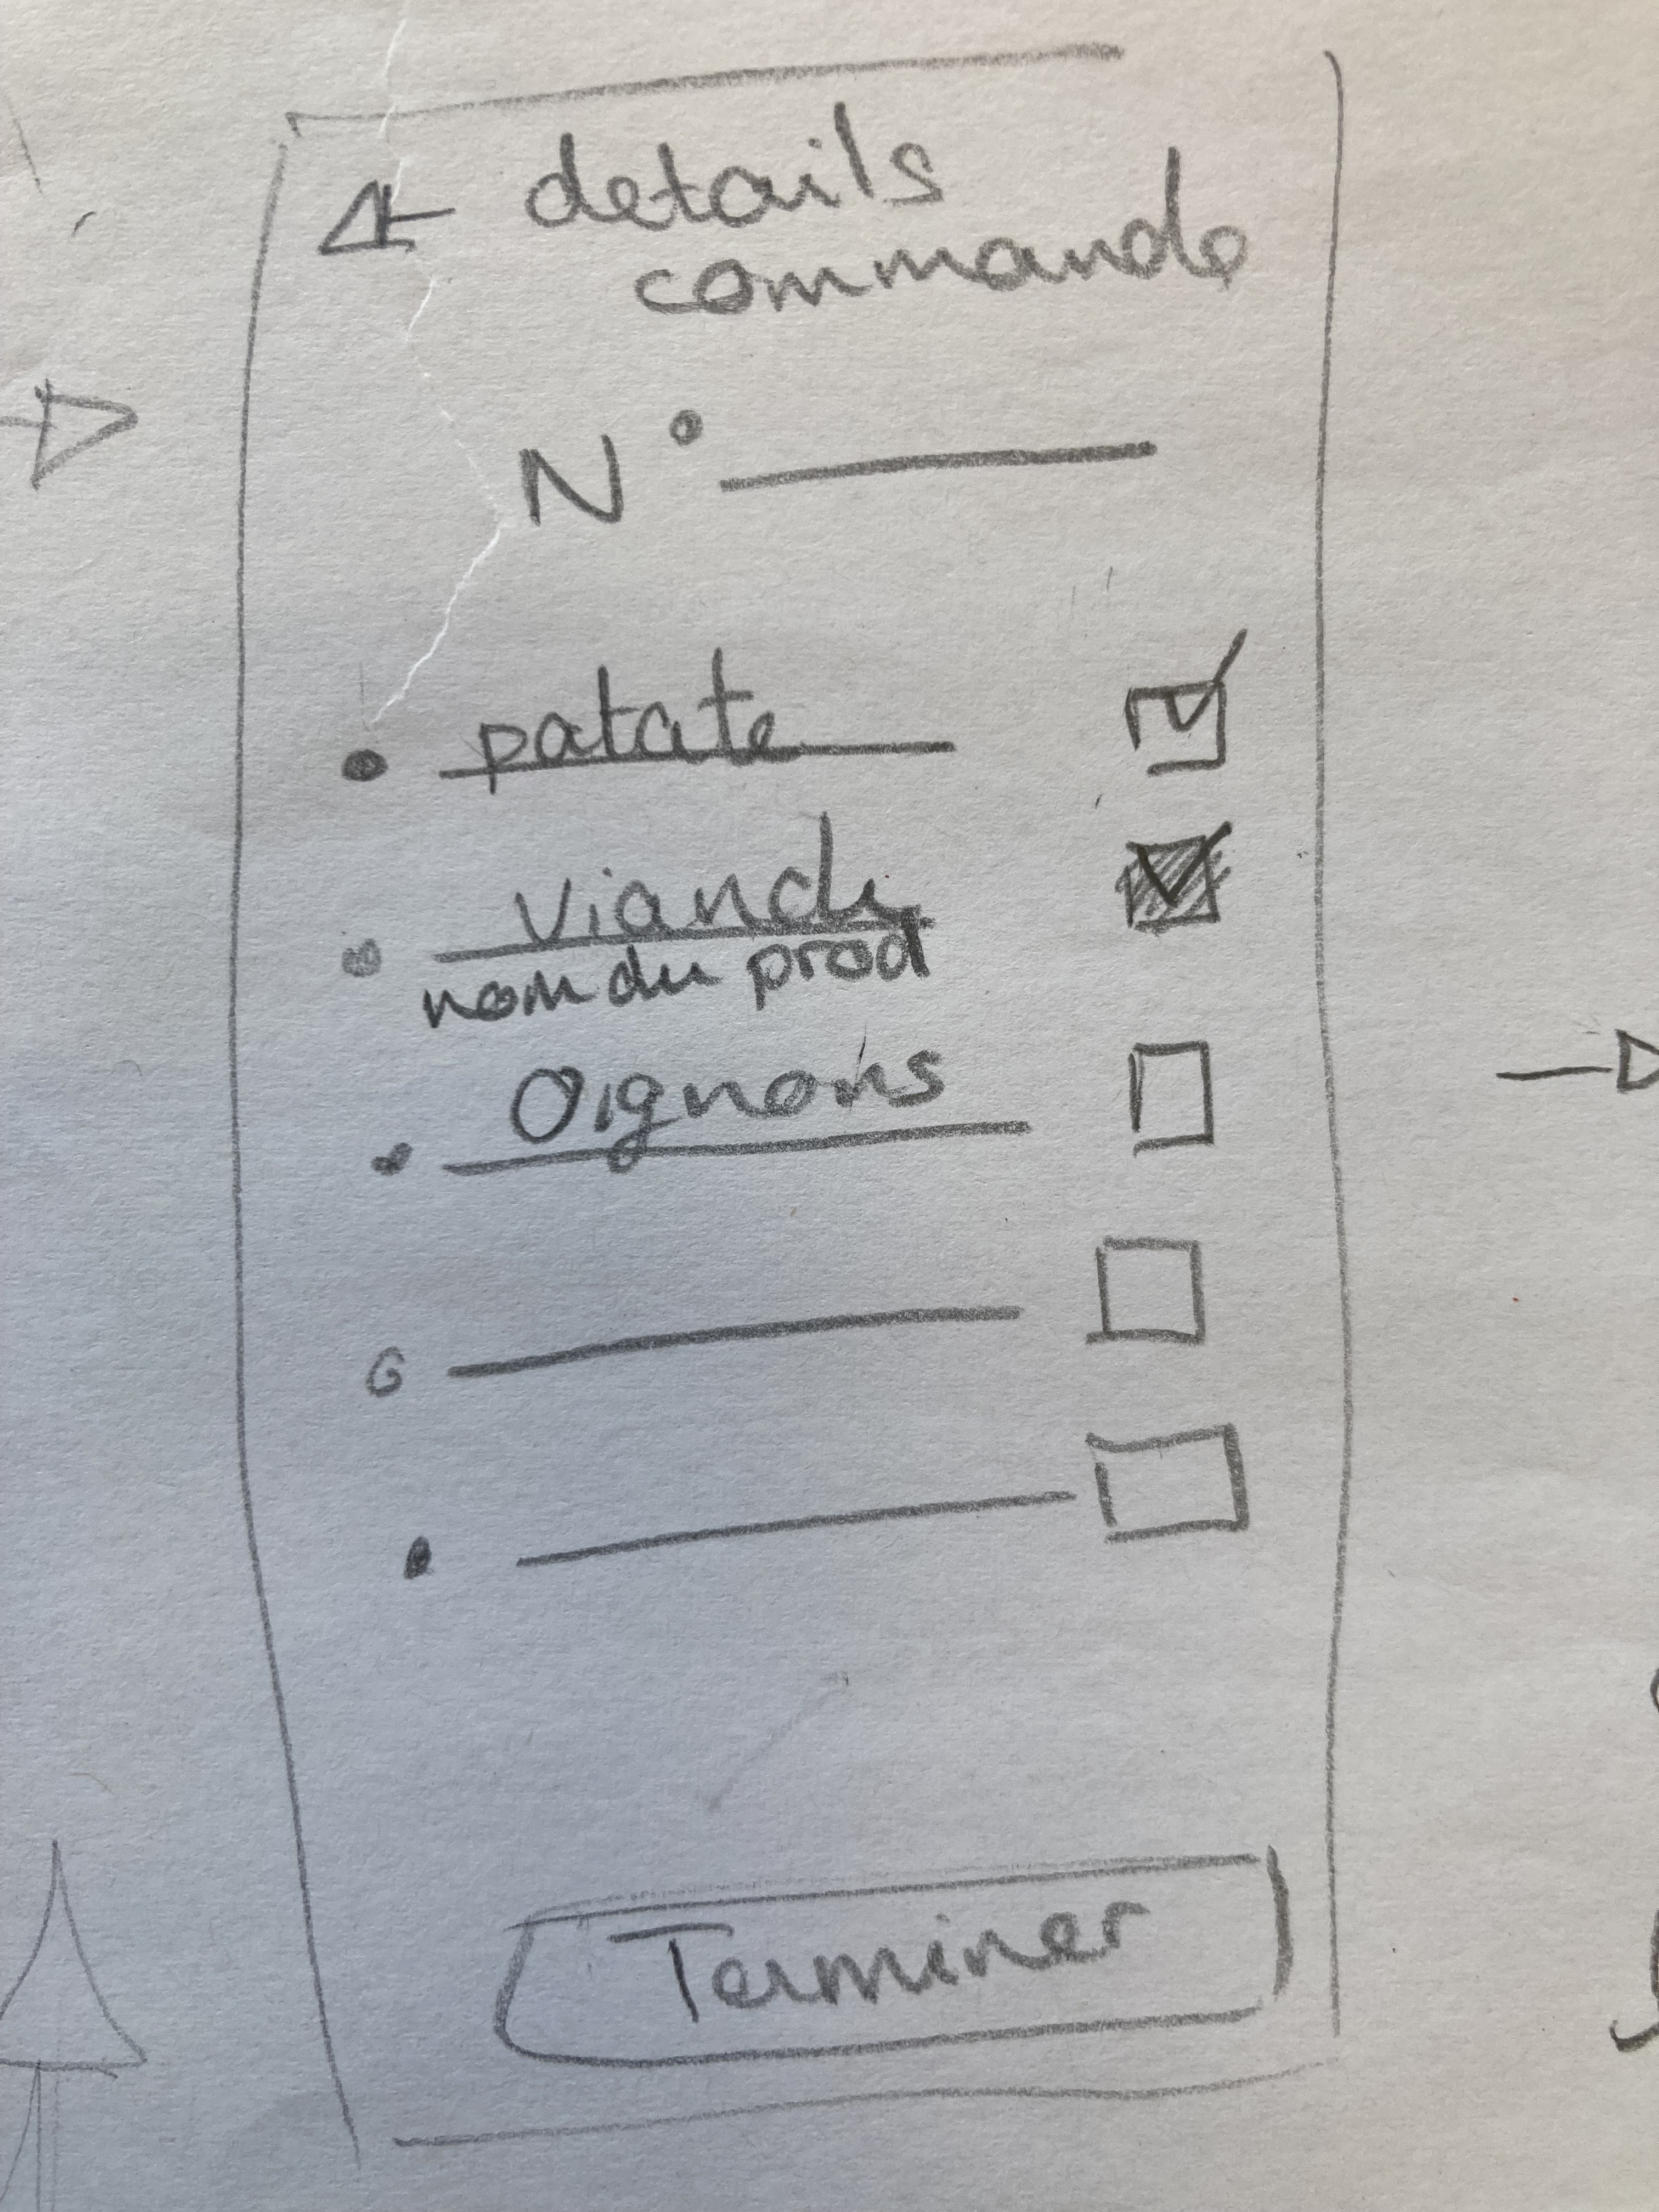 details
commande
N°
patate
viande
nom du prod
Oignons
Terminer